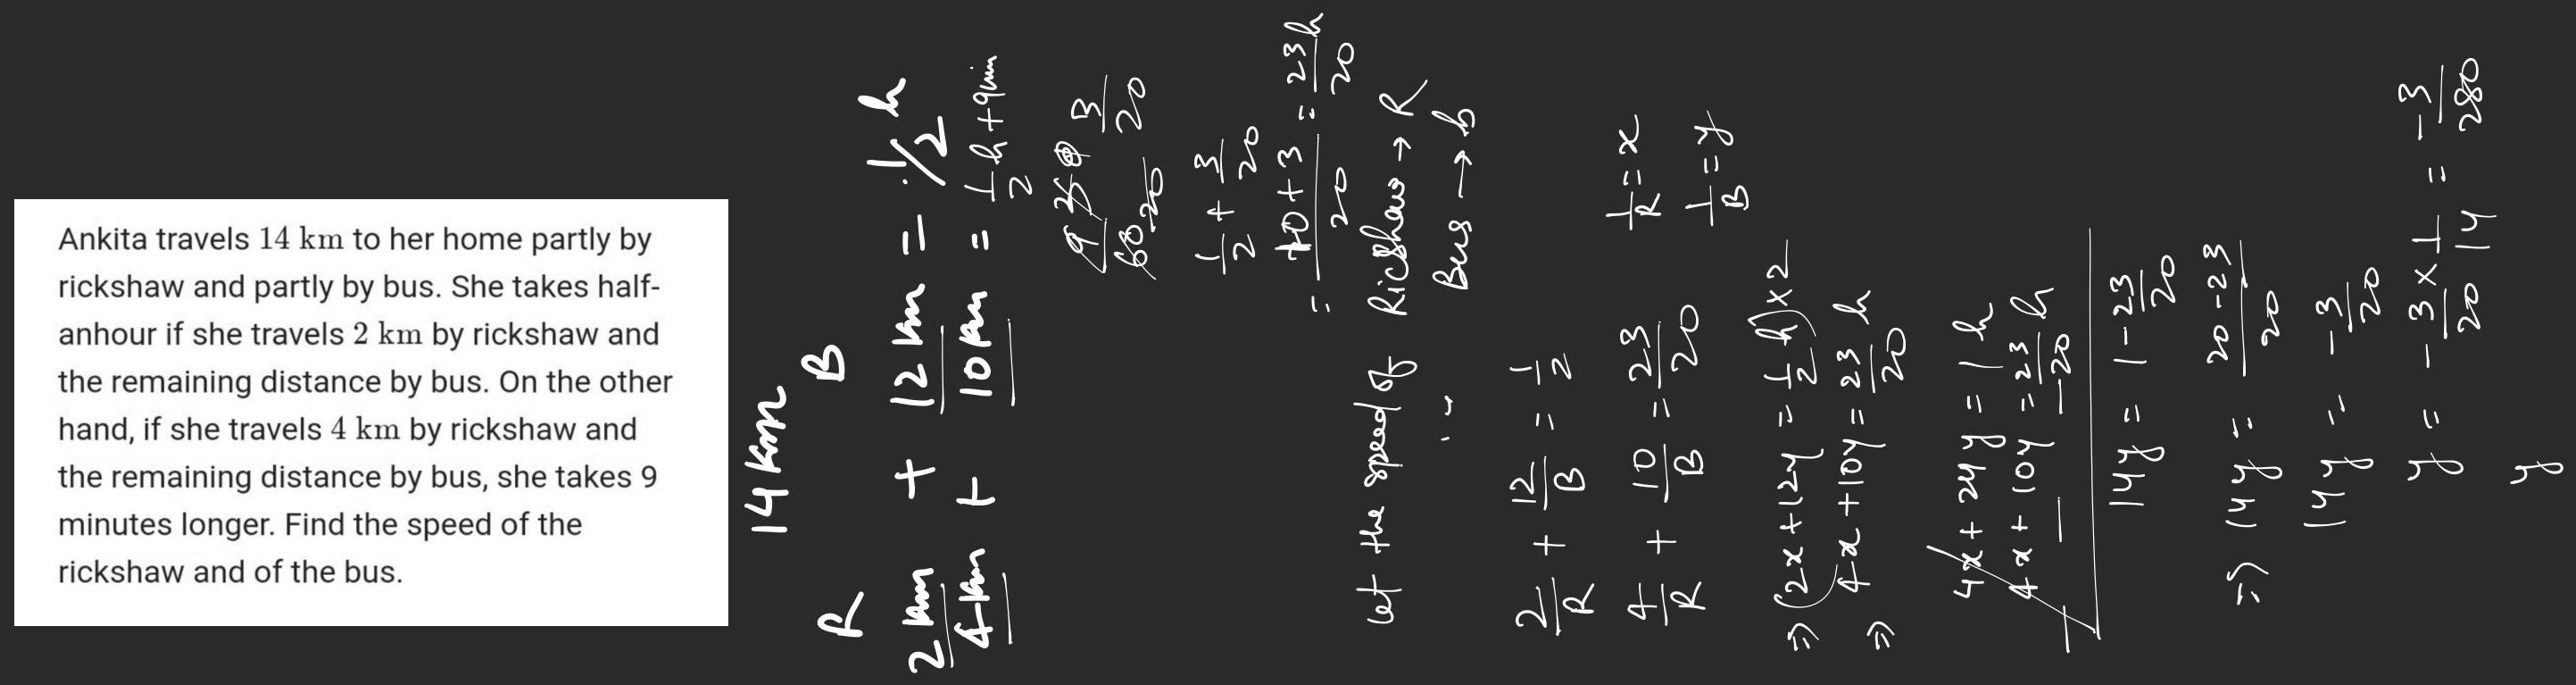 Ankita travels 14 km to her home partly by
rickshaw and partly by bus. She takes half-
anhour if she travels 2 km by rickshaw and
the remaining distance by bus. On the other
hand, if she travels 4 km by rickshaw and
the remaining distance by bus, she takes 9
minutes longer. Find the speed of the
rickshaw and of the bus.
14 km
R B
2 km + 12 km = 1/2 h
4 km + 10 km = 1/2 h + 9 min
9/60 3/20
1/2 + 3/20
= 10+3/20 = 23/20 h
Let the speed of Rickshaw → R
" Bus → b
2/R + 12/B = 1/2
4/R + 10/B = 23/20
1/R = x
1/B = y
⇒ (2x + 12y = 1/2 h) × 2
⇒ 4x + 10y = 23/20 h
4x + 24y = 1 h
4x + 10y = 23/20 h
14y = 1 - 23/20
⇒ 14y = 20-23/20
14y = -3/20
y = -3/20 × 1/14 = -3/280
y